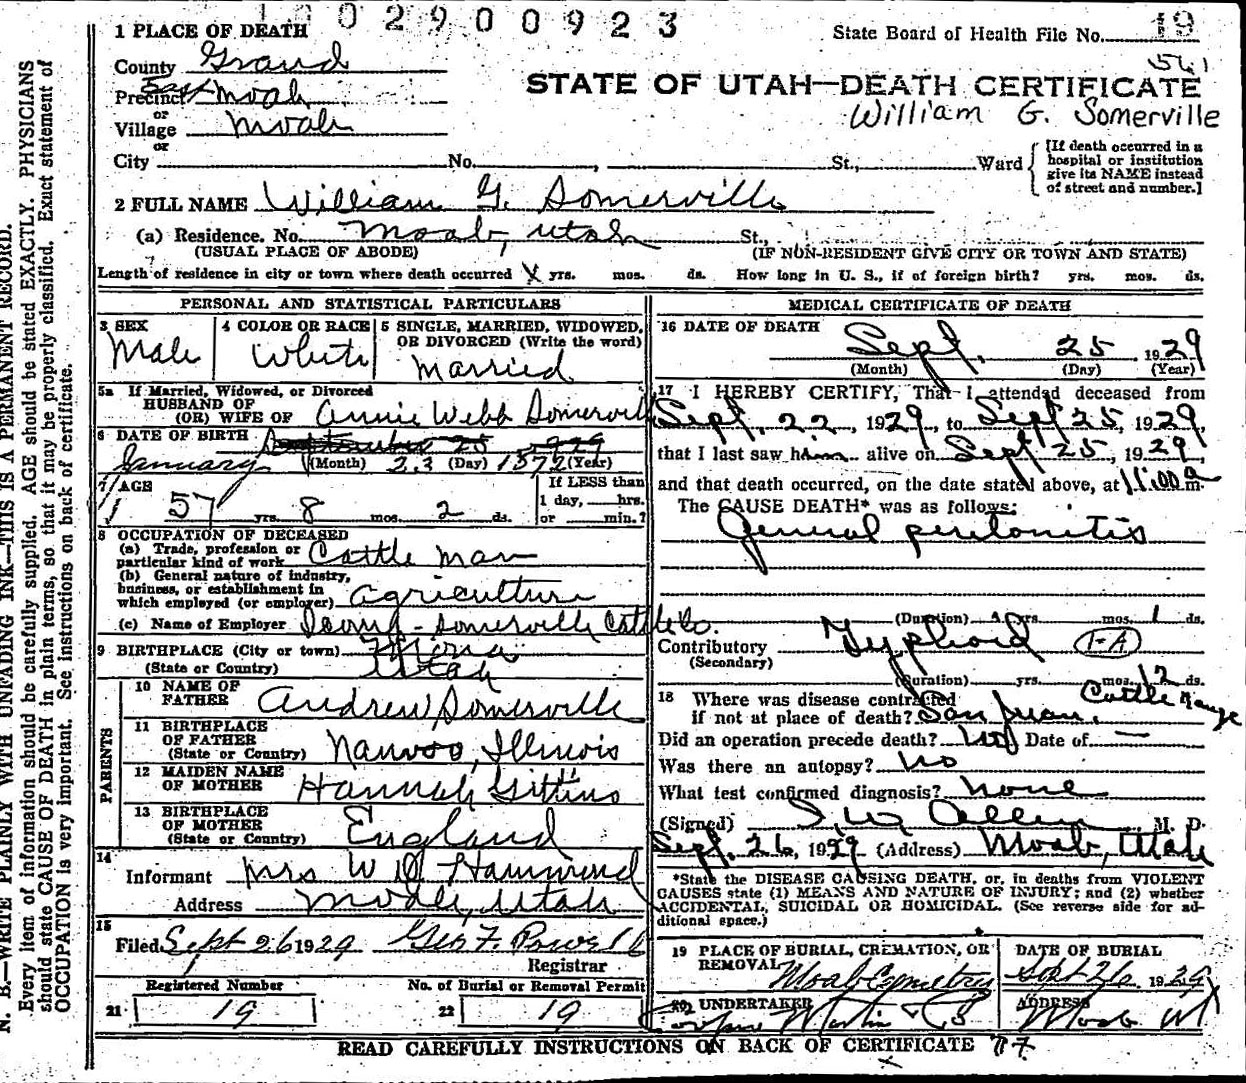 1002900923
1 PLACE OF DEATH
State Board of Health File No. 19
County Grand
541
Precinct East Moab
STATE OF UTAH—DEATH CERTIFICATE
or
William G. Somerville
Village Moab
or
City No. , St., Ward
[If death occurred in a
hospital or institution
give its NAME instead
of street and number.]
2 FULL NAME William G. Somerville
(a) Residence. No. Moab, Utah St.,
(USUAL PLACE OF ABODE) (IF NON-RESIDENT GIVE CITY OR TOWN AND STATE)
Length of residence in city or town where death occurred X yrs. mos. ds. How long in U. S., if of foreign birth? yrs. mos. ds.
PERSONAL AND STATISTICAL PARTICULARS
3 SEX
Male
4 COLOR OR RACE
White
5 SINGLE, MARRIED, WIDOWED,
OR DIVORCED (Write the word)
Married
5a If Married, Widowed, or Divorced
HUSBAND OF
(OR) WIFE OF Annie Webb Somerville
6 DATE OF BIRTH September 25 1929
January (Month) 23 (Day) 1872 (Year)
7 AGE
57 yrs. 8 mos. 2 ds.
If LESS than
1 day, hrs.
or min.?
8 OCCUPATION OF DECEASED
(a) Trade, profession or
particular kind of work Cattle man
(b) General nature of industry,
business, or establishment in
which employed (or employer) agriculture
(c) Name of Employer Somerville Cattle Co.
9 BIRTHPLACE (City or town) Mona
(State or Country) Utah
PARENTS
10 NAME OF
FATHER Andrew Somerville
11 BIRTHPLACE
OF FATHER
(State or Country) Nauvoo, Illinois
12 MAIDEN NAME
OF MOTHER Hannah Gittins
13 BIRTHPLACE
OF MOTHER
(State or Country) England
14
Informant Mrs W D Hammond
Address Moab, Utah
15
Filed Sept 26 1929 Geo F. Powell
Registrar
Registered Number
21 19
No. of Burial or Removal Permit
22 19
MEDICAL CERTIFICATE OF DEATH
16 DATE OF DEATH
Sept. 25, 1929
(Month) (Day) (Year)
17 I HEREBY CERTIFY, That I attended deceased from
Sept. 22, 1929, to Sept 25, 1929,
that I last saw him alive on Sept 25, 1929,
and that death occurred, on the date stated above, at 11:00 a m.
The CAUSE DEATH* was as follows:
General peritonitis
(Duration) yrs. mos. 1 ds.
Contributory Typhoid 1-A
(Secondary)
(Duration) yrs. mos. 12 ds.
18 Where was disease contracted Cattle Range
if not at place of death? San Juan,
Did an operation precede death? no Date of —
Was there an autopsy? no
What test confirmed diagnosis? none
(Signed) I. W. Allen M. D.
Sept. 26, 1929 (Address) Moab, Utah
*State the DISEASE CAUSING DEATH, or, in deaths from VIOLENT
CAUSES state (1) MEANS AND NATURE OF INJURY; and (2) whether
ACCIDENTAL, SUICIDAL OR HOMICIDAL. (See reverse side for ad-
ditional space.)
19 PLACE OF BURIAL, CREMATION, OR
REMOVAL Moab Cemetery
DATE OF BURIAL
Sept 26 1929
20 UNDERTAKER
Martin
ADDRESS
Moab Ut
READ CAREFULLY INSTRUCTIONS ON BACK OF CERTIFICATE
N. B.—WRITE PLAINLY WITH UNFADING INK—THIS IS A PERMANENT RECORD.
Every item of information should be carefully supplied. AGE should be stated EXACTLY. PHYSICIANS
should state CAUSE OF DEATH in plain terms, so that it may be properly classified. Exact statement of
OCCUPATION is very important. See instructions on back of certificate.